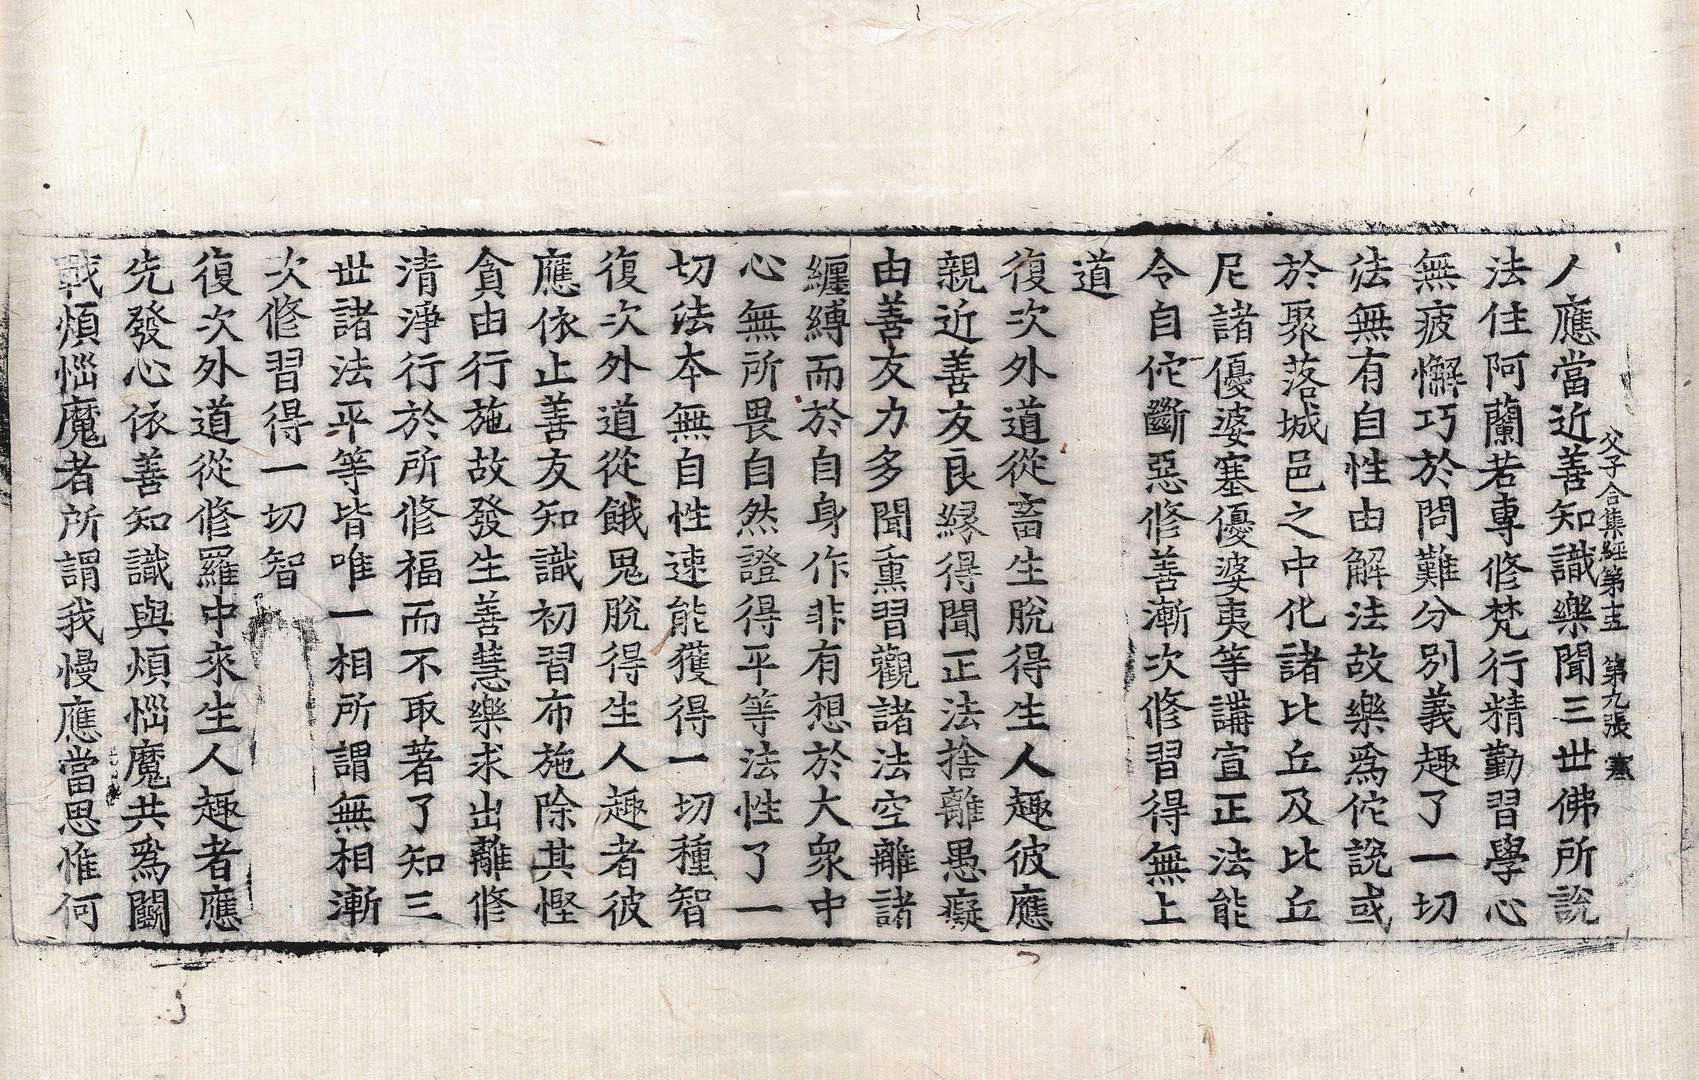 父子合集經第十五　第九張　薫
人應當近善知識樂聞三世佛所說
法住阿蘭若專修梵行精勤習學心
無疲懈巧於問難分別義趣了一切
法無有自性由解法故樂爲佗說或
於聚落城邑之中化諸比丘及比丘
尼諸優婆塞優婆夷等講宣正法能
令自佗斷惡修善漸次修習得無上
道
復次外道從畜生脫得生人趣彼應
親近善友良緣得聞正法捨離愚癡
由善友力多聞熏習觀諸法空離諸
纏縛而於自身作非有想於大衆中
心無所畏自然證得平等法性了一
切法本無自性速能獲得一切種智
復次外道從餓鬼脫得生人趣者彼
應依止善友知識初習布施除其慳
貪由行施故發生善慧樂求出離修
清淨行於所修福而不取著了知三
世諸法平等皆唯一相所謂無相漸
次修習得一切智
復次外道從修羅中來生人趣者應
先發心依善知識與煩惱魔共爲鬪
戰煩惱魔者所謂我慢應當思惟何